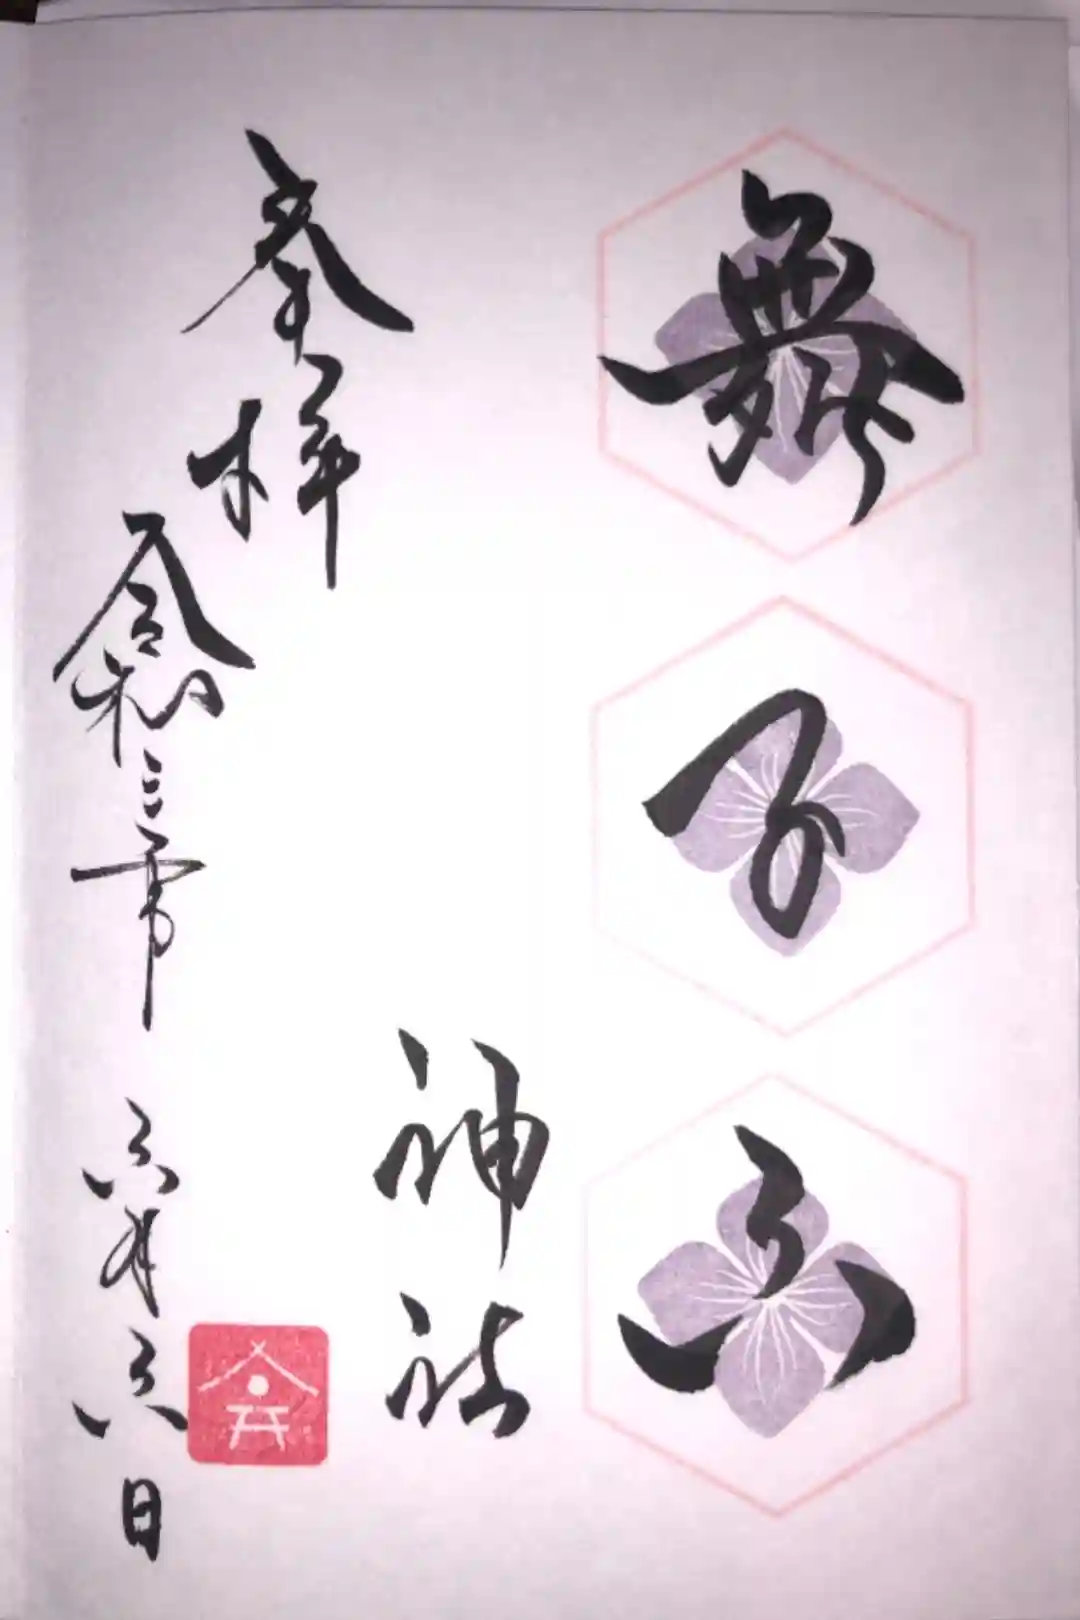 舞子六
神社
奉拝
令和三年 六月六日